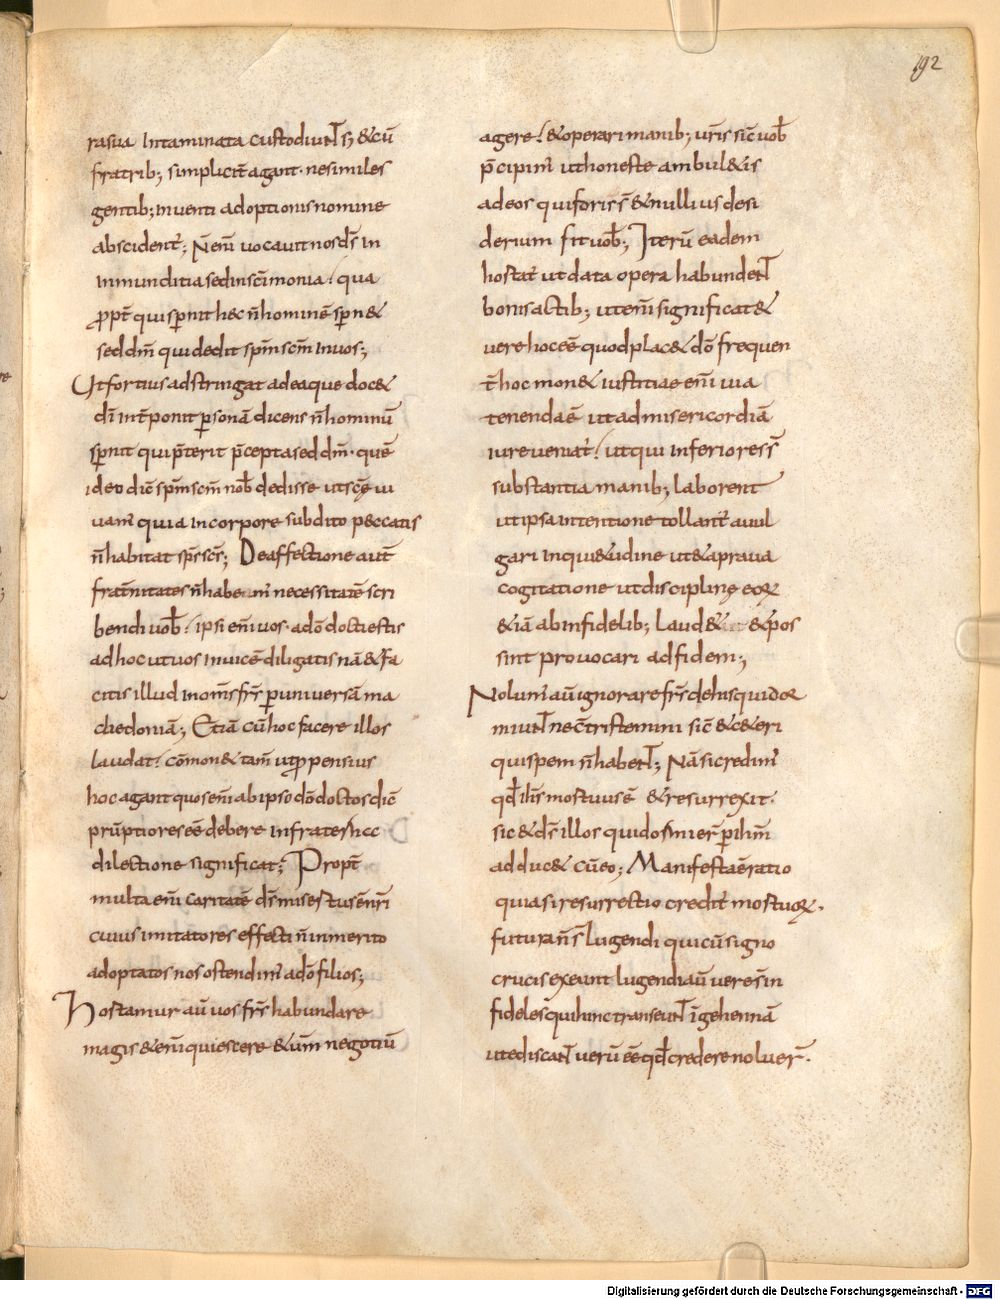 192
rasua intaminata custodiunt s; & cū
fratrib; simplicit̄ agant · ne similes
gentib; inventi adoptionis nomine
abscident̄; N̄ eni᷎ uocauit nos d̄s in
inmunditia sed in sc̄imonia! qua
propt̄ qui sp̄nit hęc n̄ hominē sp̄n&
sed d̄m qui dedit sp̄m sc̄m in uos;
Ut fortius adstringat ad ea que doc&
d̄i int̄ponit p̱sonā dicens n̄ hominū
sp̄nit qui p̄terit p̄cepta sed d̄m · quē
ideo dic̄ sp̄m sc̄m nob̄ dedisse ut sc̄ę ui
uam̄ quia in corpore subdito peccatis
n̄ habitat sp̄s sc̄s; De affectione aut̄
frat̄nitates n̄ habe m̄ necessitatē scri
bendi uob̄! ipsi eni᷎ uos · a dō docti estis
ad hoc ut uos inuicē diligatis nā & fa
citis illud in om̄s fr̄s p̱ uniuersā ma
chedoniā; Etiā cū hoc facere illos
laudat! cōmon& tam̄ ut p̱pensius
hoc agant quos eni᷎ ab ipso dō doctos dic̄
prūptiores eē debere in frater hęc
dilectione significat; Propt̄
multa eni᷎ caritatē d̄s misertus ē nr̄i
cuius imitatores effecti n̄ inmerito
adoptatos nos ostendim̄ a dō filios;
Hortamur aū uos fr̄s habundare
magis & eni᷎ quiescere & um̄ negotiū
agere! & operari manib; ur̄is sic̄ uob̄
p̄cipim̄ ut honeste ambul&is
ad eos qui foris s̄ & nullius desi
derium sit uob̄; Iterū eadem
hortat̄ ut data opera habundent
bonis actib; ut eni᷎ significat&
uere hoc eē quod plac& dō frequen
t̄ hoc mon& iustitiae eni᷎ uia
tenenda ē ut ad misericordiā
iure ueniat̄! ut qui inferiores s̄
substantia manib; laborent
ut ipsa intentione tollant̄ a uul
gari inqui&udine ut & a praua
cogitatione ut disciplinę eoꝝ
& iā ab infidelib; laud& & pos
sint prouocari ad fidem;
Nolum̄ aū ignorare fr̄s de his qui dor
miunt ne c̄tristemini sic̄ & c&eri
qui spem n̄ habent; Nā si credim̄
qd̄ ih̄s mortuus ē & resurrexit ·
sic & d̄s illos qui dormier̄ p̱ ih̄m
adduc& cū eo; Manifesta ē ratio
quia si resurrectio credit̄ mortuoꝝ ·
futura n̄ s̄ lugendi qui cū signo
crucis exeunt lugendi aū uere s̄ in
fideles qui hinc transeunt ī gehennā
ut ediscant uerū eē qd̄ credere noluer̄ ·
Digitalisierung gefördert durch die Deutsche Forschungsgemeinschaft - DFG